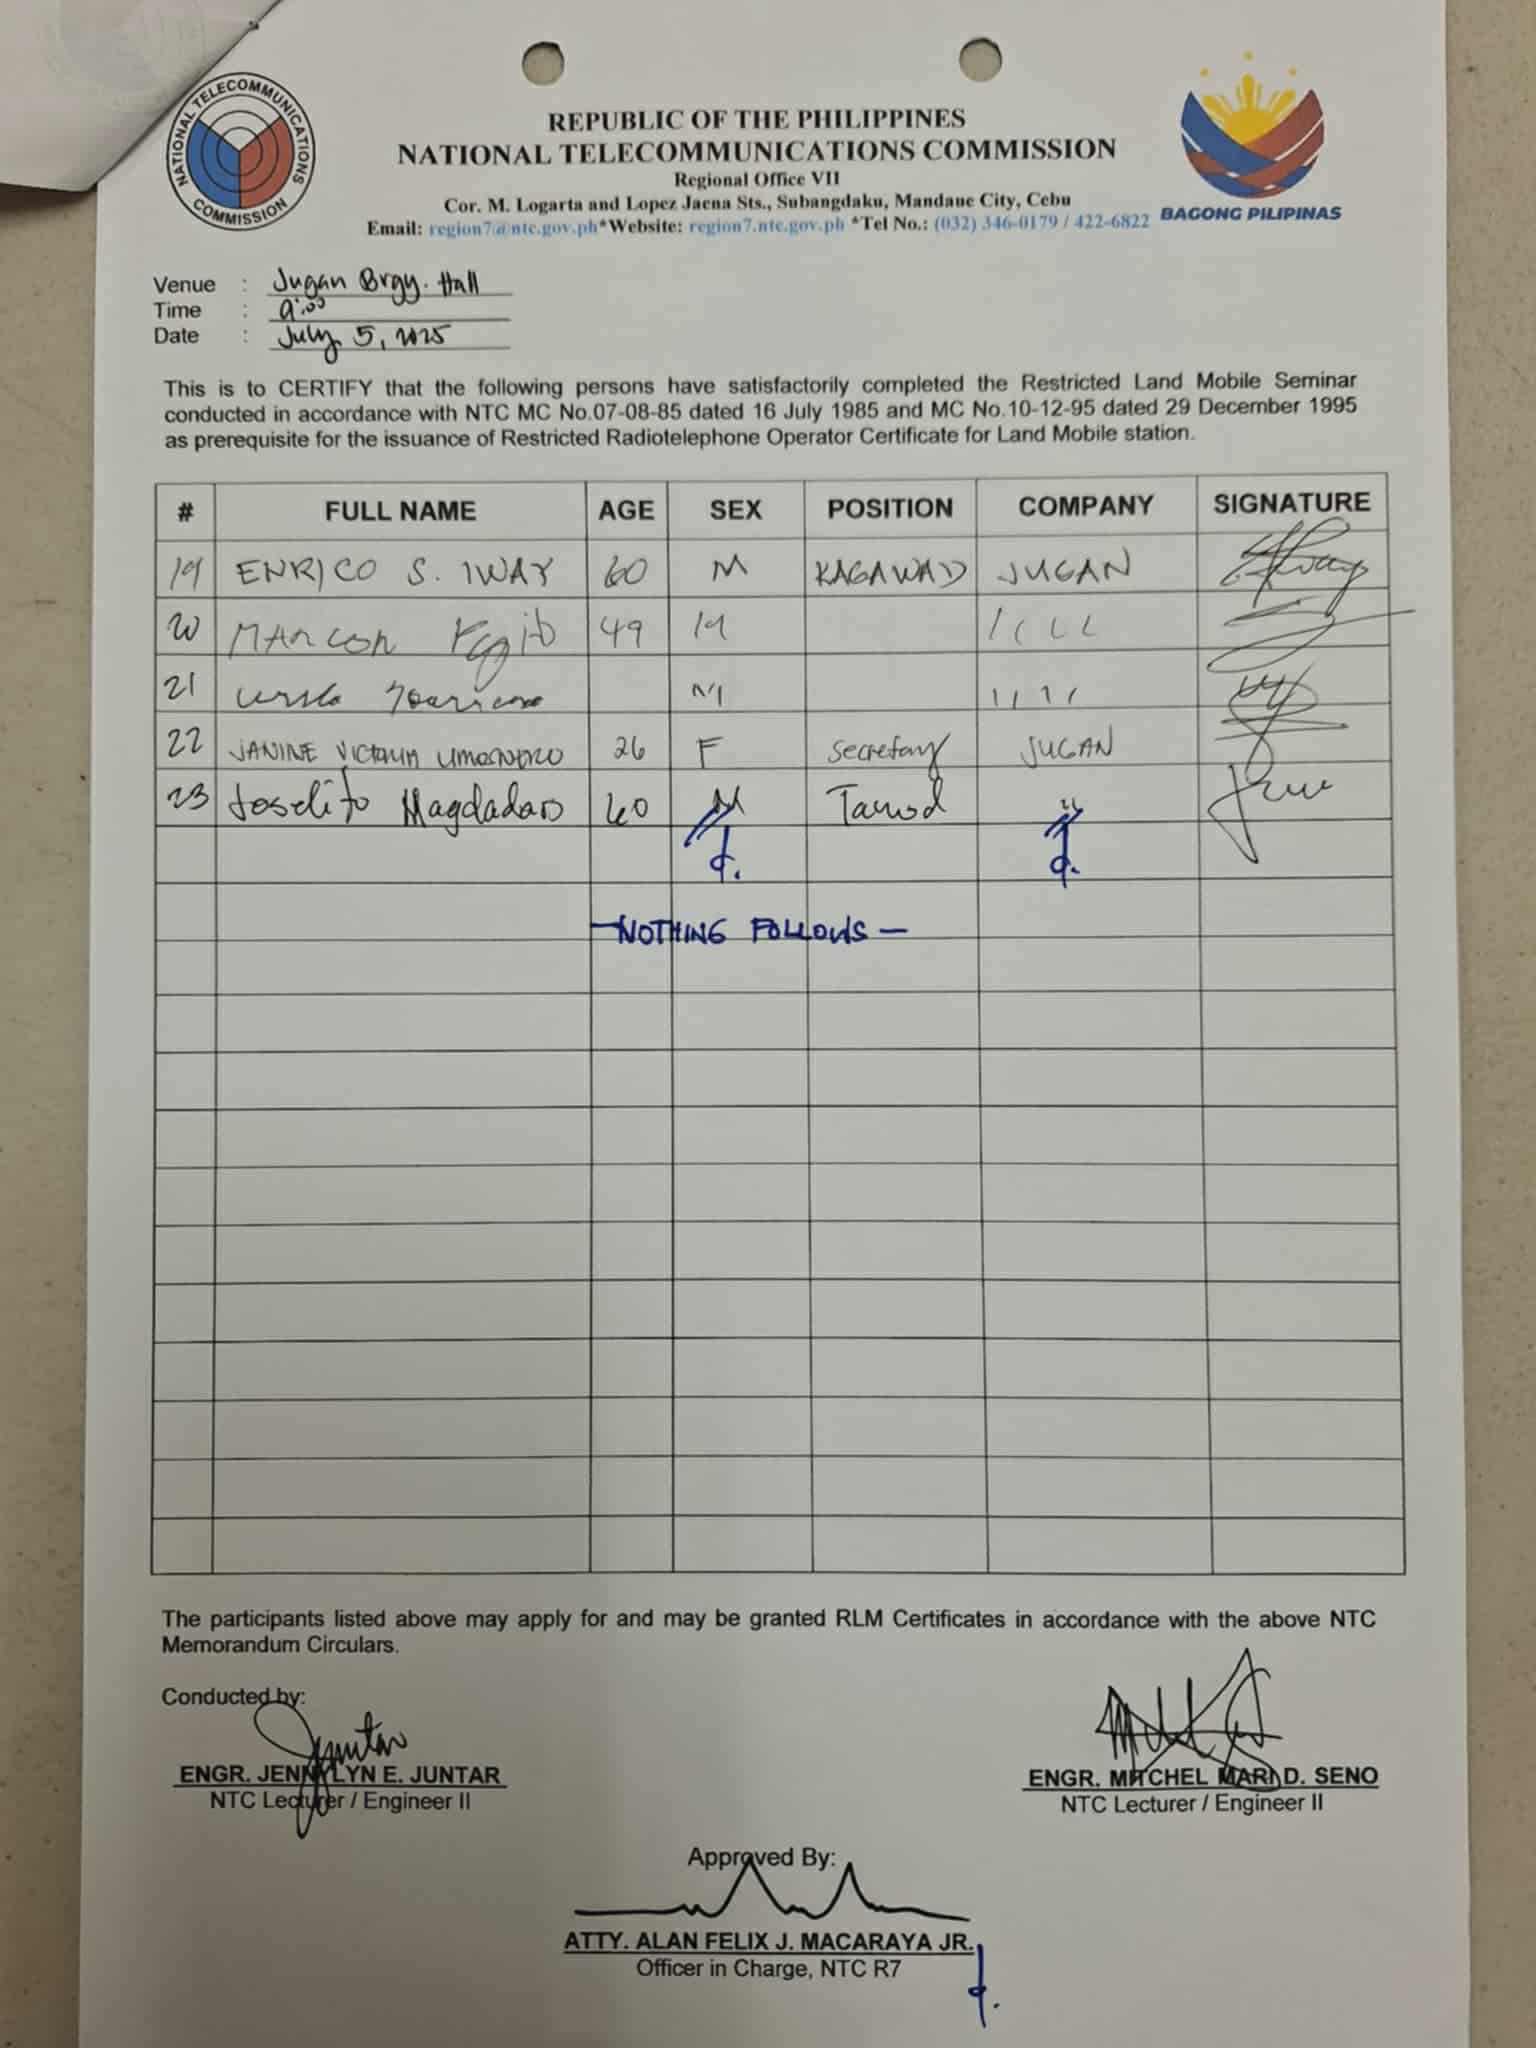 NATIONAL TELECOMMUNICATIONS COMMISSION
REPUBLIC OF THE PHILIPPINES
NATIONAL TELECOMMUNICATIONS COMMISSION
Regional Office VII
Cor. M. Logarta and Lopez Jaena Sts., Subangdaku, Mandaue City, Cebu
Email: region7@ntc.gov.ph*Website: region7.ntc.gov.ph *Tel No.: (032) 346-0179 / 422-6822
BAGONG PILIPINAS
Venue : Jugan Brgy. Hall
Time : 9:00
Date : July 5, 2025
This is to CERTIFY that the following persons have satisfactorily completed the Restricted Land Mobile Seminar
conducted in accordance with NTC MC No.07-08-85 dated 16 July 1985 and MC No.10-12-95 dated 29 December 1995
as prerequisite for the issuance of Restricted Radiotelephone Operator Certificate for Land Mobile station.
# FULL NAME AGE SEX POSITION COMPANY SIGNATURE
19 ENRICO S. IWAY 60 M KAGAWAD JUGAN
20 Marcon 49 M
21 M
22 JANINE 26 F Secretary JUGAN
23 Joselito Magdadaro 60 M Tanod "
-NOTHING FOLLOWS-
The participants listed above may apply for and may be granted RLM Certificates in accordance with the above NTC
Memorandum Circulars.
Conducted by:
ENGR. JENNYLYN E. JUNTAR
NTC Lecturer / Engineer II
ENGR. MITCHEL MARI D. SENO
NTC Lecturer / Engineer II
Approved By:
ATTY. ALAN FELIX J. MACARAYA JR.
Officer in Charge, NTC R7